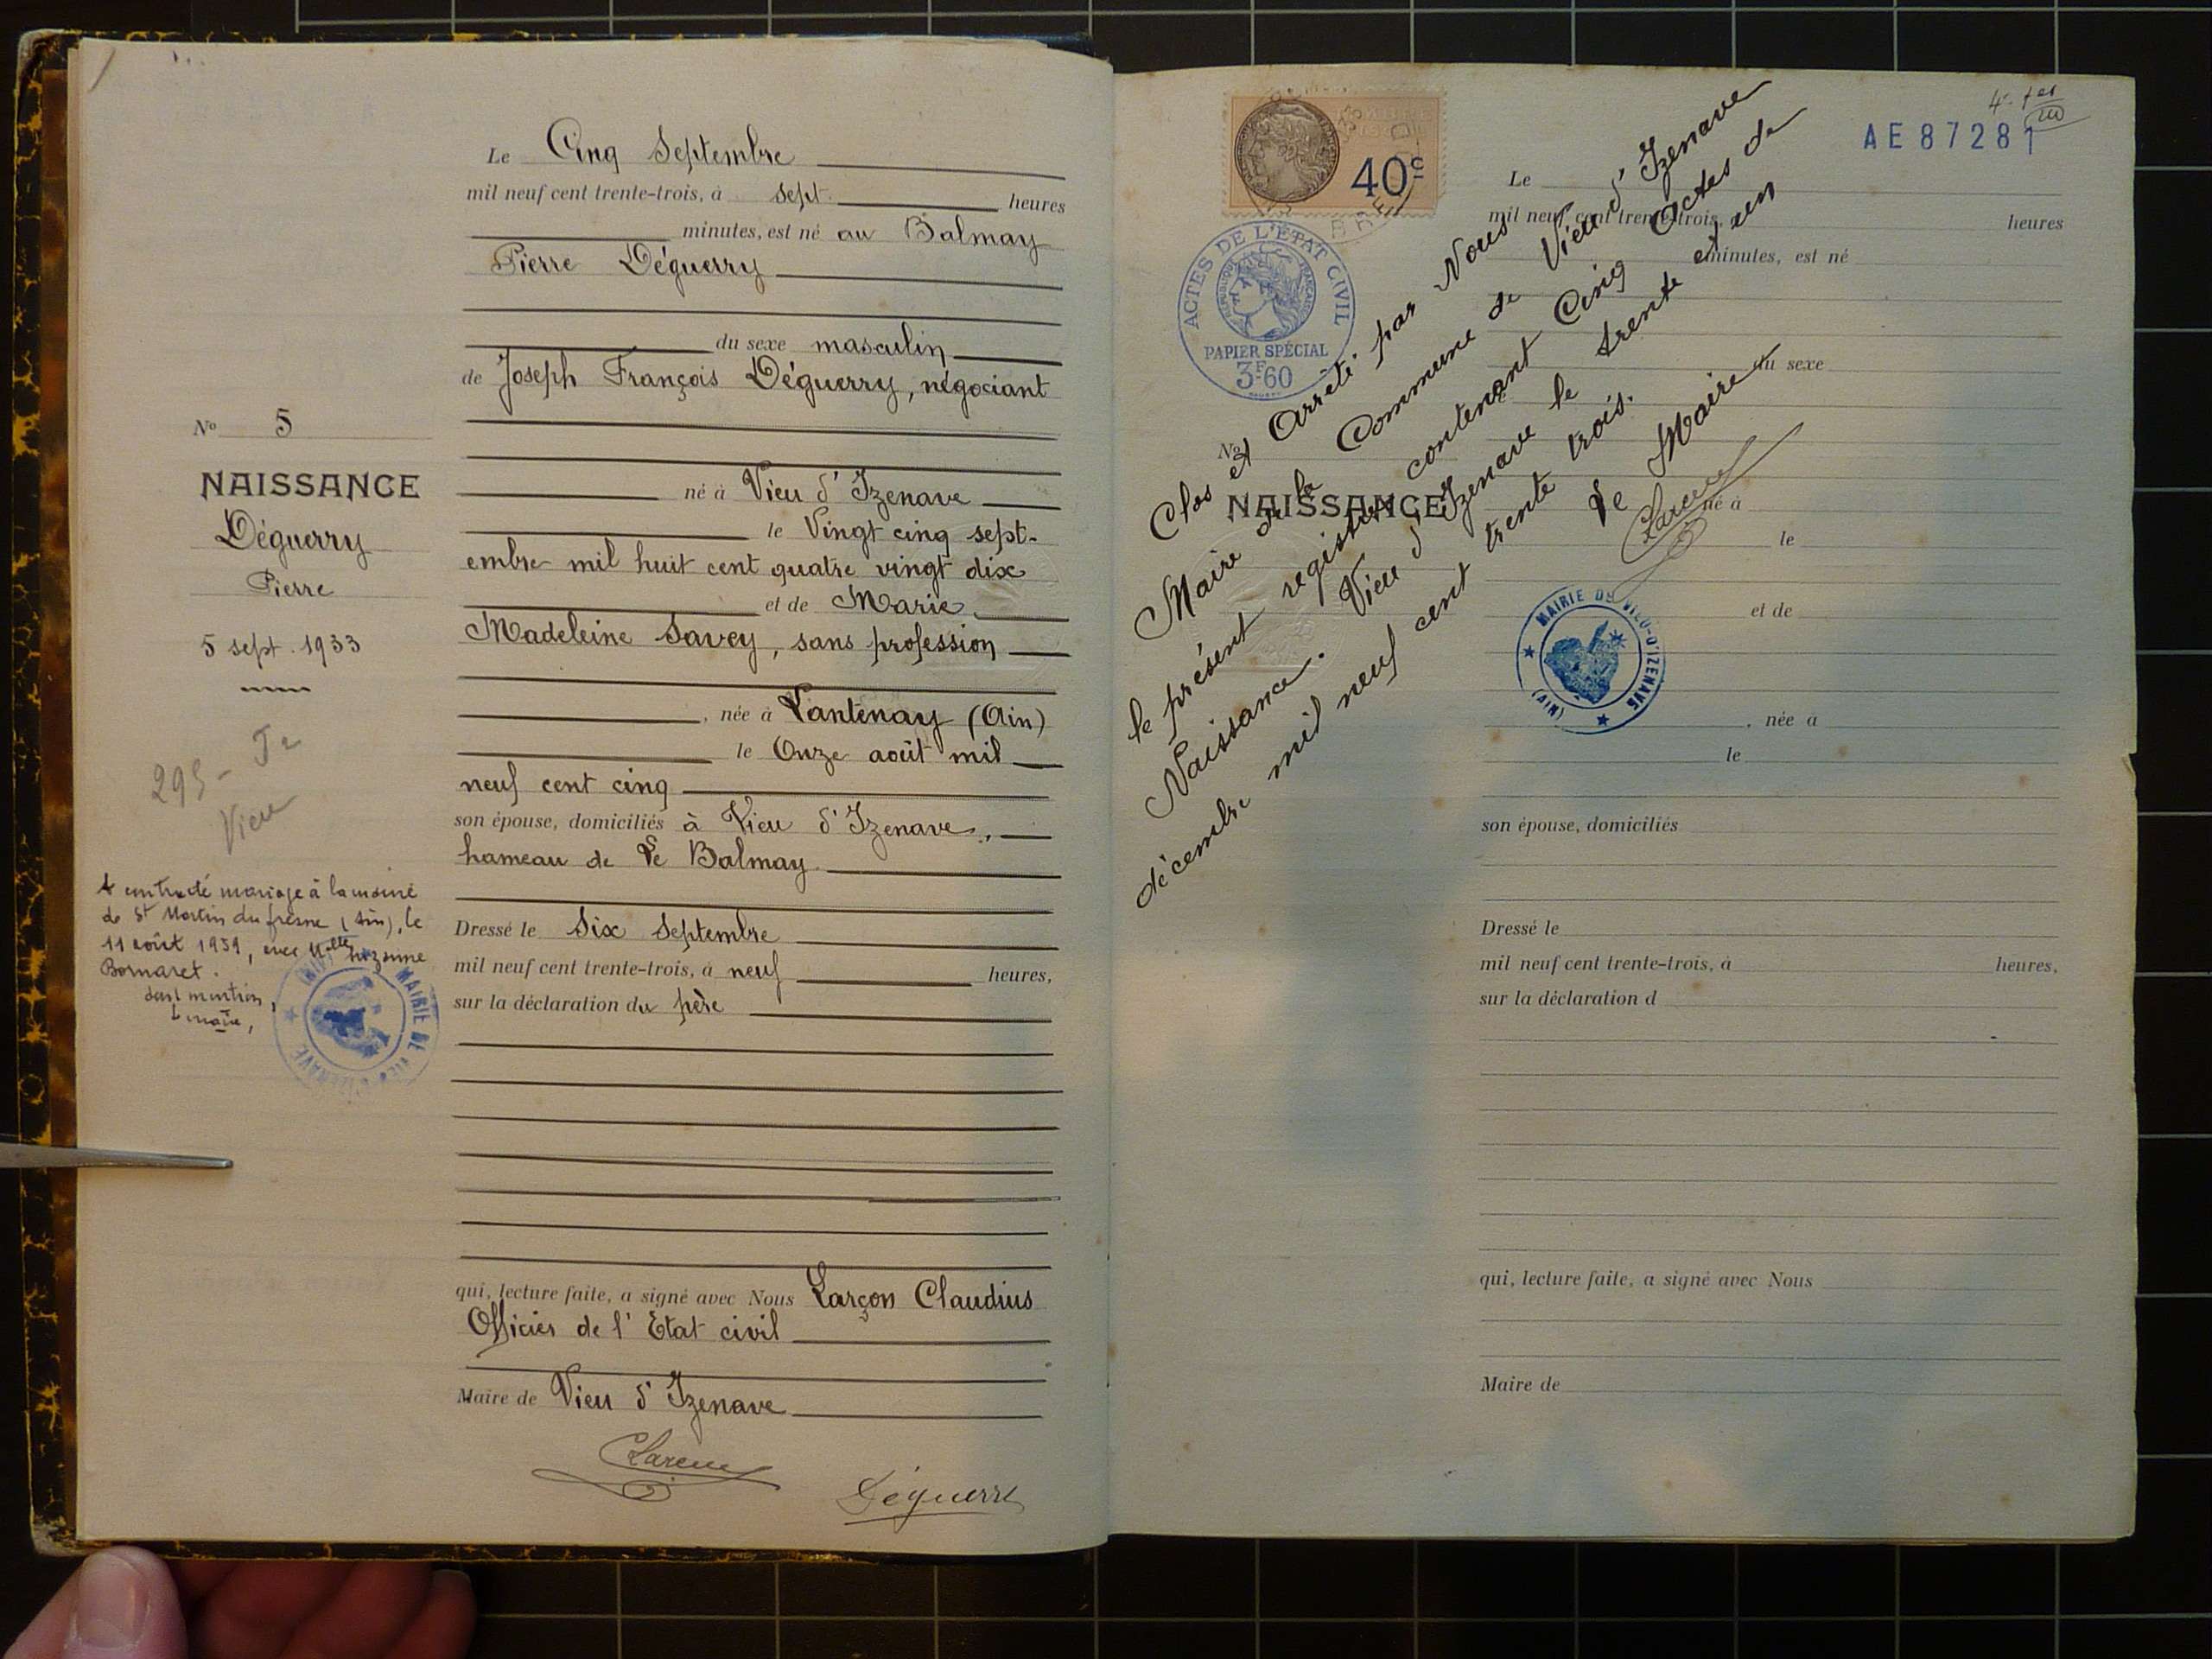 Le Cinq Septembre
mil neuf cent trente-trois, à sept. heures
minutes, est né au Balmay
Pierre Déguerry
du sexe masculin
de Joseph François Déguerry, négociant
né à Vieu d'Izenave
le Vingt cinq sept-
embre mil huit cent quatre vingt dix
et de Marie
Madeleine Savey, sans profession
, née à Lantenay (Ain)
le Onze août mil
neuf cent cinq
son épouse, domiciliés à Vieu d'Izenave,
hameau de Le Balmay
Dressé le Six Septembre
mil neuf cent trente-trois, à neuf heures,
sur la déclaration du père
qui, lecture faite, a signé avec Nous Larçon Claudius
Officier de l'Etat civil
Maire de Vieu d'Izenave
Déguerry
No 5
NAISSANCE
Déguerry
Pierre
5 sept. 1933
295
Vieu
A contracté mariage à la mairie
de St Martin du fresne (Ain), le
11 août 1959, avec Melle Suzanne
Bornaret.
dont mention,
Le maire,
MAIRIE DE VIEU D'IZENAVE
40c
AE87281
ACTES DE L'ÉTAT CIVIL
RÉPUBLIQUE FRANÇAISE
PAPIER SPÉCIAL
3F60
Clos et Arrêté par Nous
Maire de la Commune de Vieu d'Izenave
le présent registre contenant Cinq Actes de
Naissance. Vieu d'Izenave le trente et un
décembre mil neuf cent trente trois.
Le Maire
MAIRIE DE VIEU-D'IZENAVE
(AIN)
Le
mil neuf cent trente-trois, heures
minutes, est né
du sexe
No
NAISSANCE
né à
le
et de
, née à
le
son épouse, domiciliés
Dressé le
mil neuf cent trente-trois, à heures,
sur la déclaration d
qui, lecture faite, a signé avec Nous
Maire de